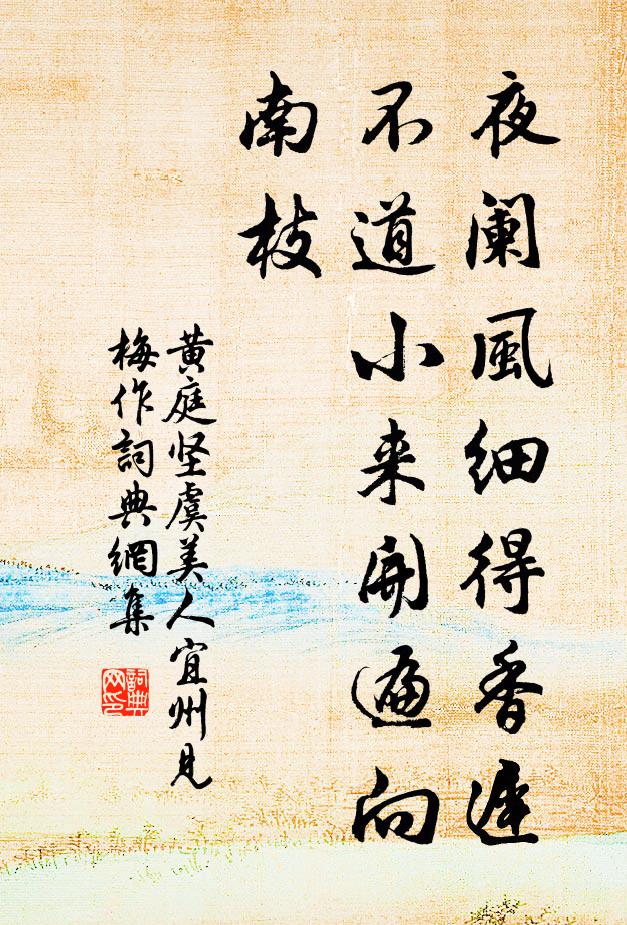 夜阑風细得香遲
不道小来開遍向
南枝
黄庭坚虞美人宜州见
梅作詞典網集
詞典
网印